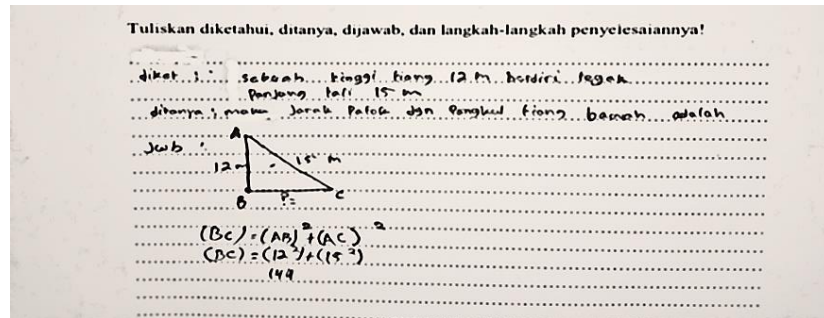 Tuliskan diketahui, ditanya, dijawab, dan langkah-langkah penyelesaiannya!
diket : sebuah tinggi tiang 12 m berdiri tegak
Panjang tali 15 m
ditanya : maka Jarak Patok dgn Pangkal tiang bawah adalah
Jwb :
A
12 m
15 m
B
?=
C
(BC) = (AB)² + (AC)²
(BC) = (12²) + (15²)
144